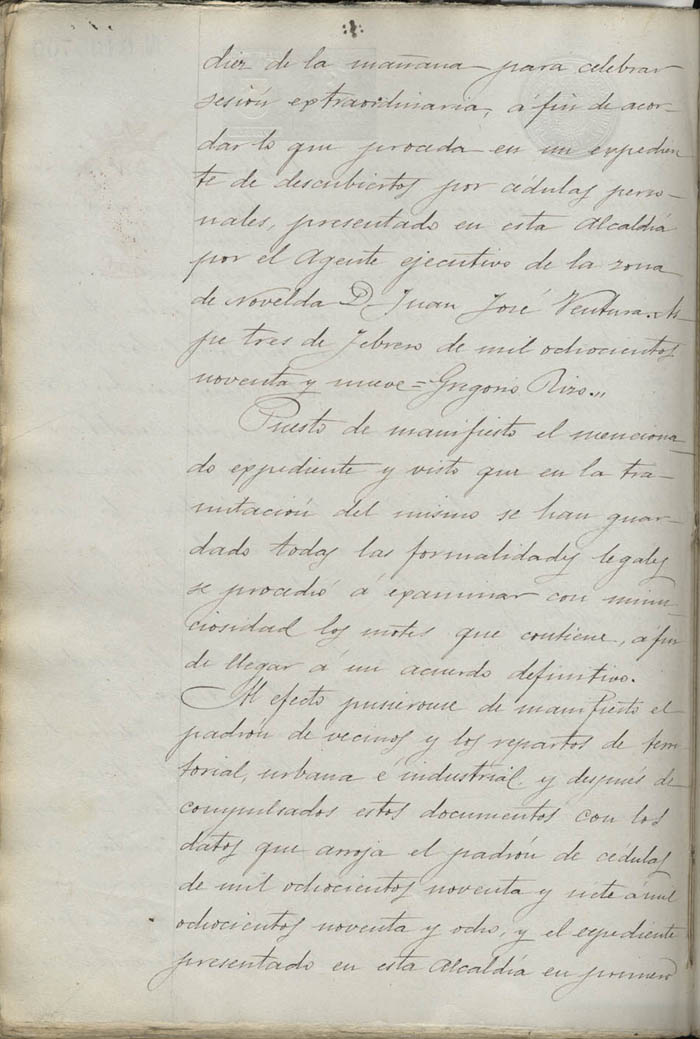 diez de la mañana para celebrar
sesión extraordinaria, á fin de acor-
dar lo que proceda en un expedien
te de descubiertos por cédulas perso-
nales, presentado en esta Alcaldía
por el Agente ejecutivo de la zona
de Novelda D. Juan José Ventura. As
pe tres de Febrero de mil ochocientos
noventa y nueve = Gregorio Rizo.,,
Puesto de manifiesto el menciona-
do expediente y visto que en la tra-
mitación del mismo se han guar-
dado todas las formalidades legales
se procedió á examinar con minu-
ciosidad los motes que contiene, á fin
de llegar á un acuerdo definitivo.
Al efecto pusieronse de manifiesto el
padrón de vecinos y los repartos de terri
torial, urbana é industrial y después de
compulsados estos documentos con los
datos que arroja el padrón de cédulas
de mil ochocientos noventa y siete á mil
ochocientos noventa y ocho, y el expediente
presentado en esta Alcaldía en primero